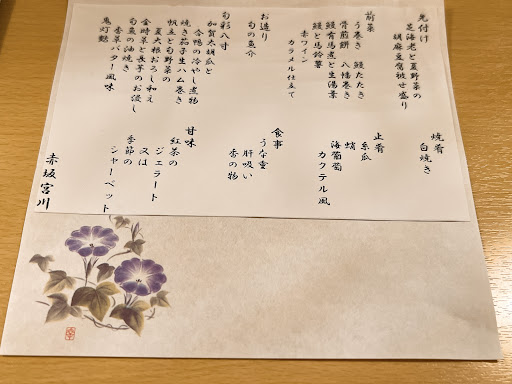 先付け
芝海老と夏野菜の
胡麻豆腐被せ盛り
前菜
う巻き 鰻たたき
骨煎餅 八幡巻き
鰻有馬煮と生湯葉
鰻と馬鈴薯
赤ワイン
カラメル仕立て
お造り
旬の魚介
旬彩八寸
加賀太胡瓜と
合鴨の冷やし煮物
焼き茄子生ハム巻き
帆立と旬野菜の
夏大根おろし和え
金時菜と長芋のお浸し
旬魚の油焼き
香草バター風味
鬼灯鶴
焼肴
白焼き
止肴
糸瓜
蛸
海葡萄
カクテル風
食事
うな重
肝吸い
香の物
甘味
紅茶の
ジェラート
又は
季節の
シャーベット
赤坂宮川